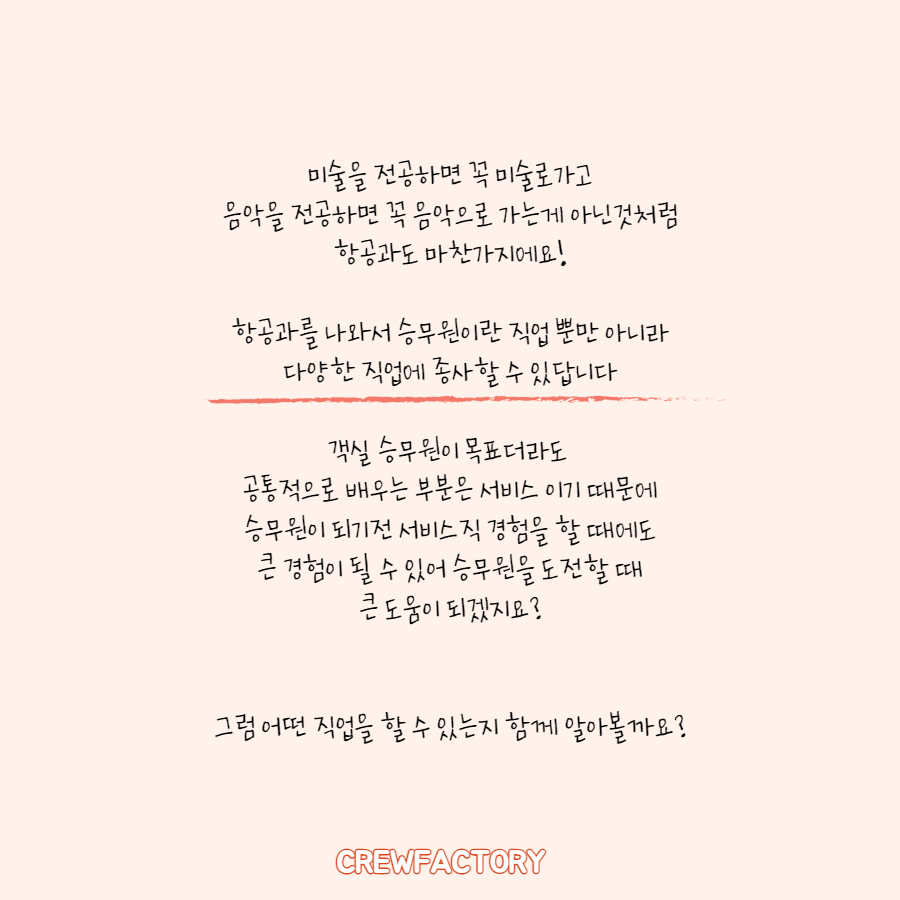 미술을 전공하면 꼭 미술로가고
음악을 전공하면 꼭 음악으로 가는게 아닌것처럼
항공과도 마찬가지에요!
항공과를 나와서 승무원이란 직업 뿐만 아니라
다양한 직업에 종사할 수 있답니다
객실 승무원이 목표더라도
공통적으로 배우는 부분은 서비스 이기 때문에
승무원이 되기전 서비스직 경험을 할 때에도
큰 경험이 될 수 있어 승무원을 도전할 때
큰 도움이 되겠지요?
그럼 어떤 직업을 할 수 있는지 함께 알아볼까요?
CREWFACTORY